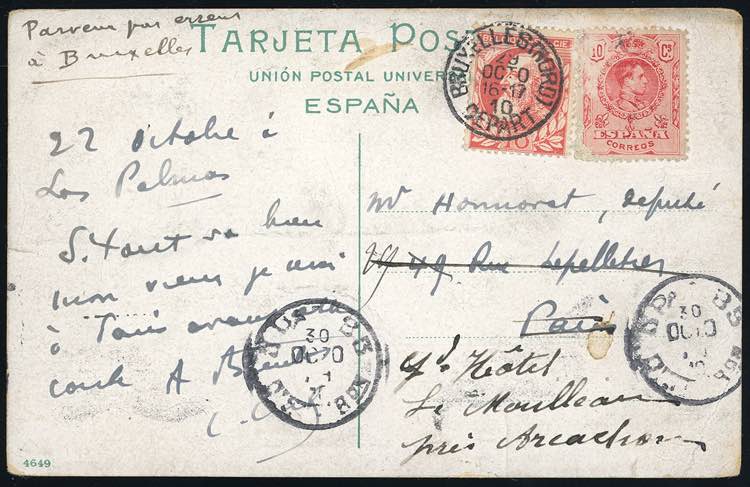 Parvenu par erreur
à Bruxelles
TARJETA POS
UNIÓN POSTAL UNIVER
ESPAÑA
BRUXELLES (NORD)
29
OCTO
16-17
10
DEPART
10
10 Cs
ESPAÑA
CORREOS
22 Octobre à
Las Palmas
S. tout va bien
mon vieux je
à Paris
Mr Honnorat, député
49 Rue Lepelletier
Paris
Gd Hôtel
Le Moulleau
près Arcachon
30
OCTO
30
OCTO
4649